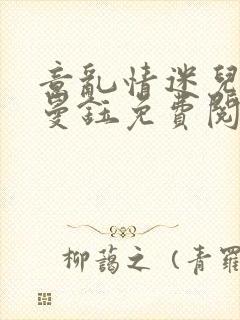 意亂情迷兒
曼鈺免費閱
柳藹之（青羅